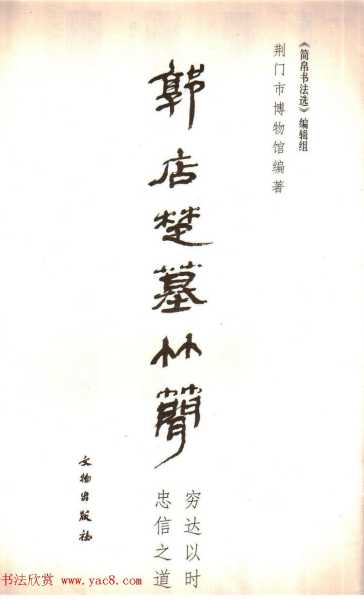 《简帛书法选》编辑组
荆门市博物馆编著
郭店楚墓竹简
穷达以时
忠信之道
文物出版社
书法欣赏 www.yac8.com